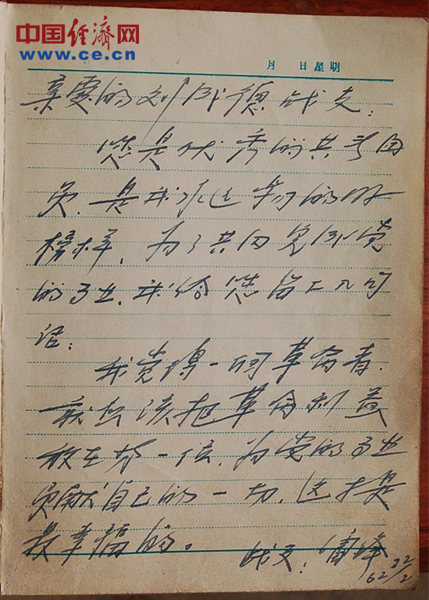 中国经济网
www.ce.cn
月 日 星期
亲爱的刘成德战友：
您是优秀的共青团
员，是我永远学习的好
榜样，为了共同完成党
的事业，我给您留下几句
话：
我觉得一個革命者，
就应该把革命利益
放在第一位，为党的事业
贡献自己的一切，这才是
最幸福的。
战友：雷锋
62 22/2